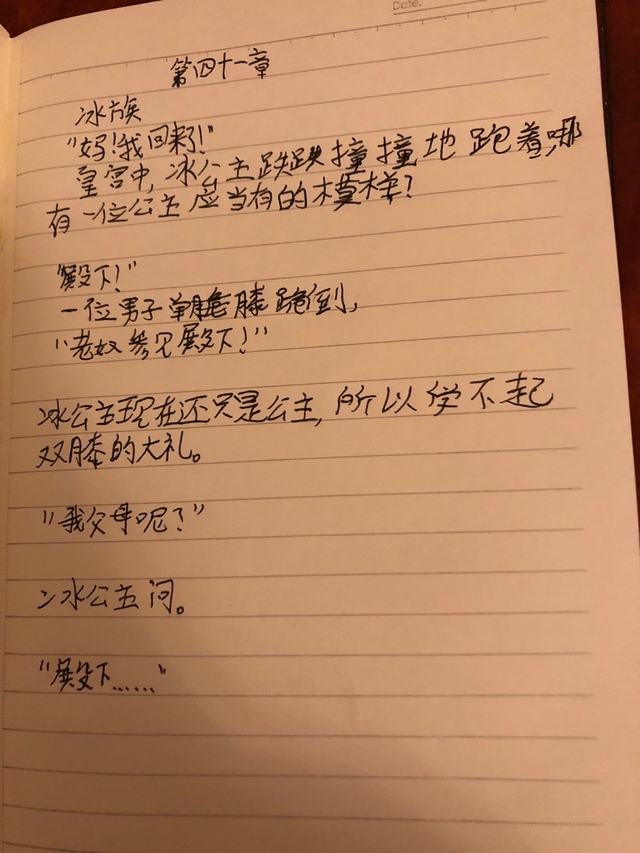 Date.
第四十一章
冰族
"妈！我回来了！"
皇宫中，冰公主跌跌撞撞地跑着，哪
有一位公主应当有的模样？
"殿下！"
一位男子单膝跪倒，
"老奴参见殿下！"
冰公主现在还只是公主，所以受不起
双膝的大礼。
"我父母呢？"
冰公主问。
"殿下……"